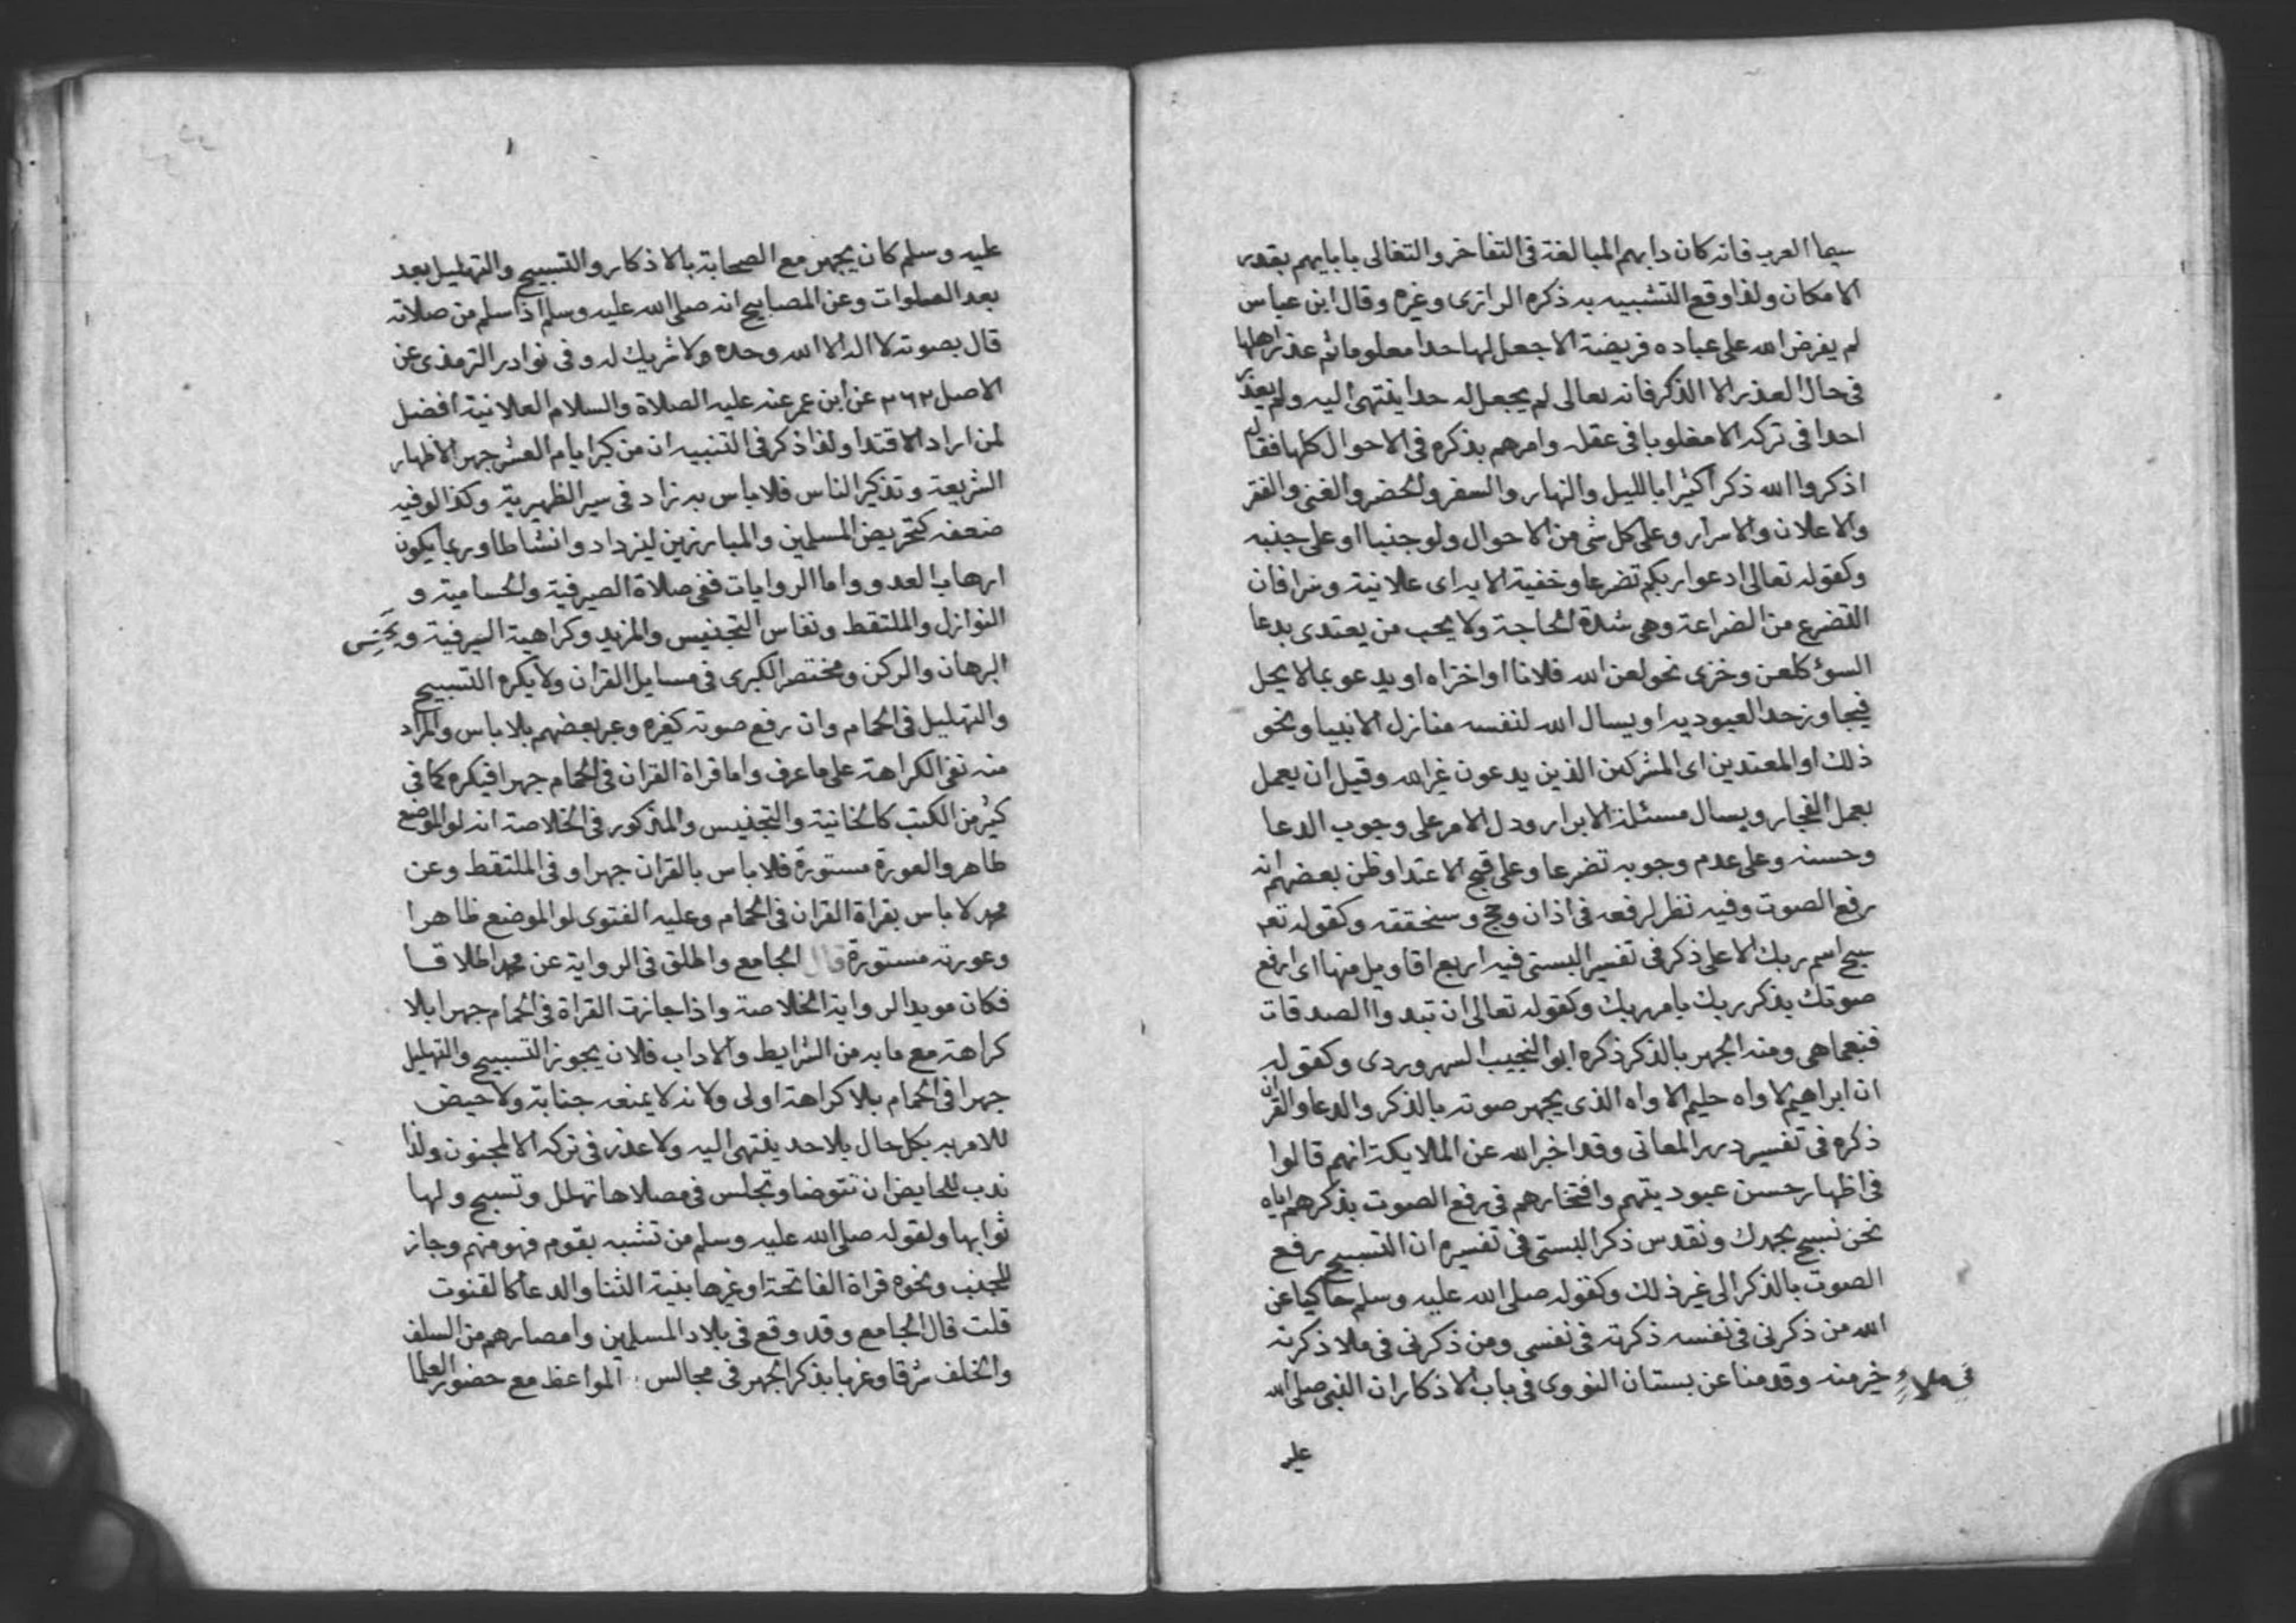 سيما العرب فانه كان دابهم المبالغة فى التفاخر والتغالى بابايهم بقدر
الامكان ولذا وقع التشبيه به ذكره الرازى وغيره وقال ابن عباس
لم يفرض الله على عباده فريضة الا جعل لها حدا معلوما ثم عذر اهلها
فى حال العذر الا الذكر فانه تعالى لم يجعل له حدا ينتهى اليه ولم يعذر
احدا فى تركه الا مغلوبا فى عقله وامرهم بذكره فى الاحوال كلها فقال
اذكروا الله ذكرا كثيرا بالليل والنهار والسفر والحضر والغنى والفقر
والاعلان والاسرار وعلى كل شى من الاحوال ولو جنبا او على جنبه
وكقوله تعالى ادعوا ربكم تضرعا وخفية الايه اى علانية وسرا فان
التضرع من الضراعة وهى شدة الحاجة ولا يحب من يعتدى بدعا
السؤ كلعن وخزى نحو لعن الله فلانا او اخزاه او يدعو بما لا يحل
فيجاوز حد العبوديه او يسال الله لنفسه منازل الانبيا ونحو
ذلك او المعتدين اى المشركين الذين يدعون غير الله وقيل ان يعمل
بعمل الفجار ويسال مسئلة الابرار ودل الامر على وجوب الدعا
وحسنه وعلى عدم وجوبه تضرعا وعلى قبح الاعتدا وظن بعضهم انه
رفع الصوت وفيه نظر لرفعه فى اذان وحج وسنحققه وكقوله تعه
سبح اسم ربك الاعلى ذكر فى تفسير البستى فيه اربع اقاويل منها اى ارفع
صوتك بذكر ربك بامر ربك وكقوله تعالى ان تبدوا الصدقات
فنعما هى ومنه الجهر بالذكر ذكره ابو النجيب السهروردى وكقوله
ان ابراهيم لاواه حليم الاواه الذى يجهر صوته بالذكر والدعا والقران
ذكره فى تفسير درر المعانى وقد اخبر الله عن الملايكة انهم قالوا
فى اظهار حسن عبوديتهم وافتخارهم فى رفع الصوت بذكرهم اياه
نحن نسبح بحمدك ونقدس ذكر البستى فى تفسيره ان التسبيح رفع
الصوت بالذكر الى غير ذلك وكقوله صلى الله عليه وسلم حاكيا عن
الله من ذكرنى فى نفسه ذكرته فى نفسى ومن ذكرنى فى ملا ذكرته
فى ملاءٍ خير منه وقدمنا عن بستان النووى فى باب الاذكار ان النبى صلى الله
عليه
عليه وسلم كان يجهر مع الصحابة بالاذكار والتسبيح والتهليل بعد
بعد الصلوات وعن المصابيح انه صلى الله عليه وسلم اذا سلم من صلاته
قال بصوته لا اله الا الله وحده ولا شريك له وفى نوادر الترمذى عن
الاصل ٢٦٢ عن ابن عمر عنه عليه الصلاة والسلام العلانية افضل
لمن اراد الاقتدا ولذا ذكر فى التنبيه ان من كبر ايام العشر جهرا لاظهار
الشريعة وتذكير الناس فلا باس به زاد فى سير الظهيرية وكذا لو فيه
ضعفه كتحريض المسلمين والمبارزين ليزدادوا نشاطا وربما يكون
ارهاب العدو واما الروايات ففى صلاة الصيرفية والحسامية و
النوازل والملتقط ونفاس التجنيس والمزيد وكراهية السيرفية وتجنيس
البرهان والركن ومختصر الكبرى فى مسايل القران ولا يكره التسبيح
والتهليل فى الحمام وان رفع صوته كغيره وعبر بعضهم بلا باس والمراد
منه نفى الكراهة على ما عرف واما قراة القران فى الحمام جهرا فيكره كما فى
كثير من الكتب كالخانية والتجنيس والمذكور فى الخلاصة انه لو الموضع
طاهر والعورة مستورة فلا باس بالقران جهرا وفى الملتقط وعن
محمد لا باس بقراة القران فى الحمام وعليه الفتوى لو الموضع طاهرا
وعورته مستورة قال الجامع واطلق فى الرواية عن محمد اطلاقا
فكان مويدا لرواية الخلاصة واذا جازت القراة فى الحمام جهرا بلا
كراهة مع ما به من الشرايط والاداب فلان يجوز التسبيح والتهليل
جهرا فى الحمام بلا كراهة اولى ولانه لا يمنعه جنابة ولا حيض
للامر به بكل حال بلا حد ينتهى اليه ولا عذر فى تركه الا لمجنون ولذا
ندب للحايض ان تتوضا وتجلس فى مصلاها تهلل وتسبح ولها
ثوابها ولقوله صلى الله عليه وسلم من تشبه بقوم فهو منهم وجاز
للجنب ونحوه قراة الفاتحة او غيرها بنية الثنا والدعا كالقنوت
قلت قال الجامع وقد وقع فى بلاد المسلمين وامصارهم من السلف
والخلف شرقا وغربا بذكر الجهر فى مجالس المواعظ مع حضور العلما